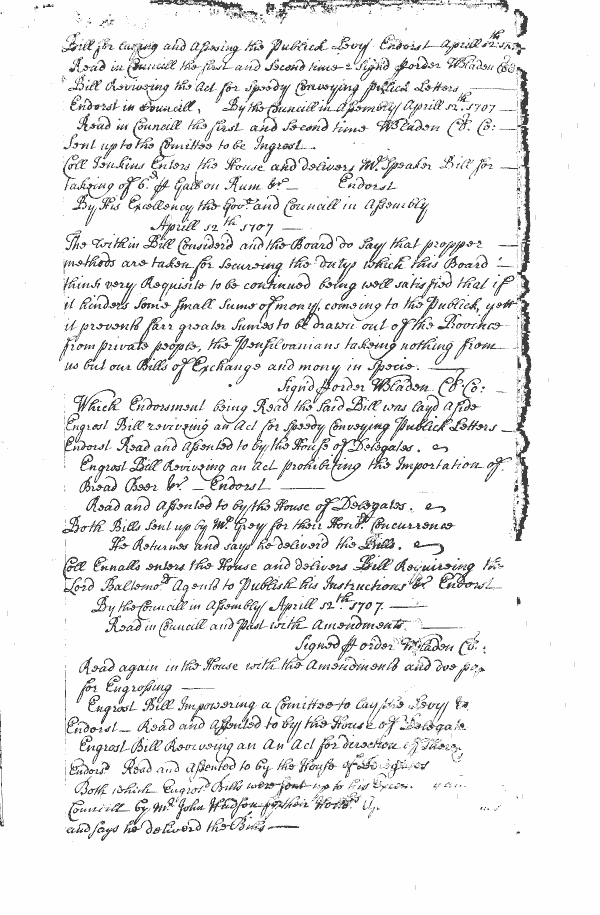 Bill for causing and Assessing the Publick Levy Endorst Aprill 12th 1707
Read in Councill the first and Second time Signd p order WBladen Cl Co:
Bill Reviveing the Act for Speedy Conveying publick Letters
Endorst in Councill, By the Councill in Assembly Aprill 12th 1707
Read in Councill the first and second time WBladen Cl. Co:
Sent up to the Comittee to be Ingrost
Coll Jenkins Enters the House and delivers Mr Speaker Bill for
takeing of 6d p Gallon Rum &c Endorst
By His Excellency the Govr and Councill in Assembly
Aprill 12th 1707
The within Bill Considerd and the Board do Say that propper
methods are taken for secureing the dutys which this Board
thinks very Requisite to be continued being well satisfied that if
it hinders some small sums of mony comeing to the Publick, yett
it prevents farr greater sumes to be drawn out of the Province
from private people, the Pensilvanians takeing nothing from
us but our Bills of Exchange and mony in Specie.
Signd p order WBladen Cl Co:
Which Endorsment being Read the Said Bill was layd aside
Engrost Bill reviveing an Act for Speedy Conveying Publick Letters
Endorst Read and Assented to by the House of Delegates.
Engrost Bill Reviveing an Act prohibiting the Importation of
Bread Beer &c Endorst
Read and Assented to by the House of Delegates.
Both Bills sent up by Mr Grey for their Honrs Concurrence
He Returnes and says he deliverd the Bills.
Coll Ennalls enters the House and delivers Bill Requireing the
Lord Baltemores Agents to Publish his Instructions &c Endorst
By the Councill in Assembly Aprill 12th 1707.
Read in Councill and Past with Amendments
Signed p order WBladen Cl.
Read again in the House with the Amendments and doe pass
for Engrossing
Engrost Bill Impowering a Comittee to lay the Levy &c
Endorst Read and Assented to by the House of Delegates
Engrost Bill Reviveing an An Act for direction of Sherr
Endorsd Read and Assented to by the House of
Both which Engrost Bills were sent up to his Excell.
Councill by Mr John Hudson for their Honrs
and says he deliverd the Bills